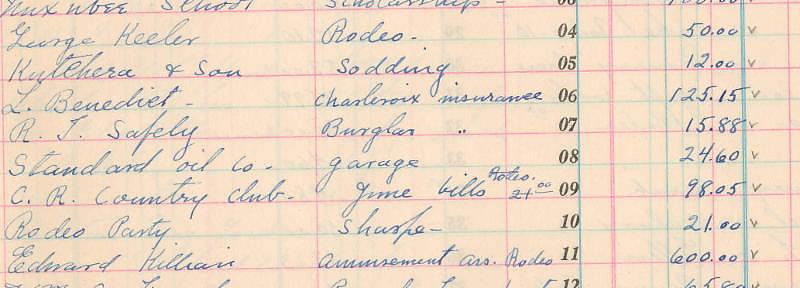 School Scholarship - 03 100.00
George Keeler Rodeo. 04 50.00 v
Kutchera & Son Sodding 05 12.00 v
L. Benedict - Charlevoix insurance 06 125.15 v
R. J. Safely Burglar " 07 15.88 v
Standard oil Co. garage 08 24.60 v
C. R. Country Club. June bills Rodeo. 21.00 09 98.05 v
Rodeo Party Sharpe - 10 21.00 v
Edward Killian amusement ars. Rodeo 11 600.00 v
12